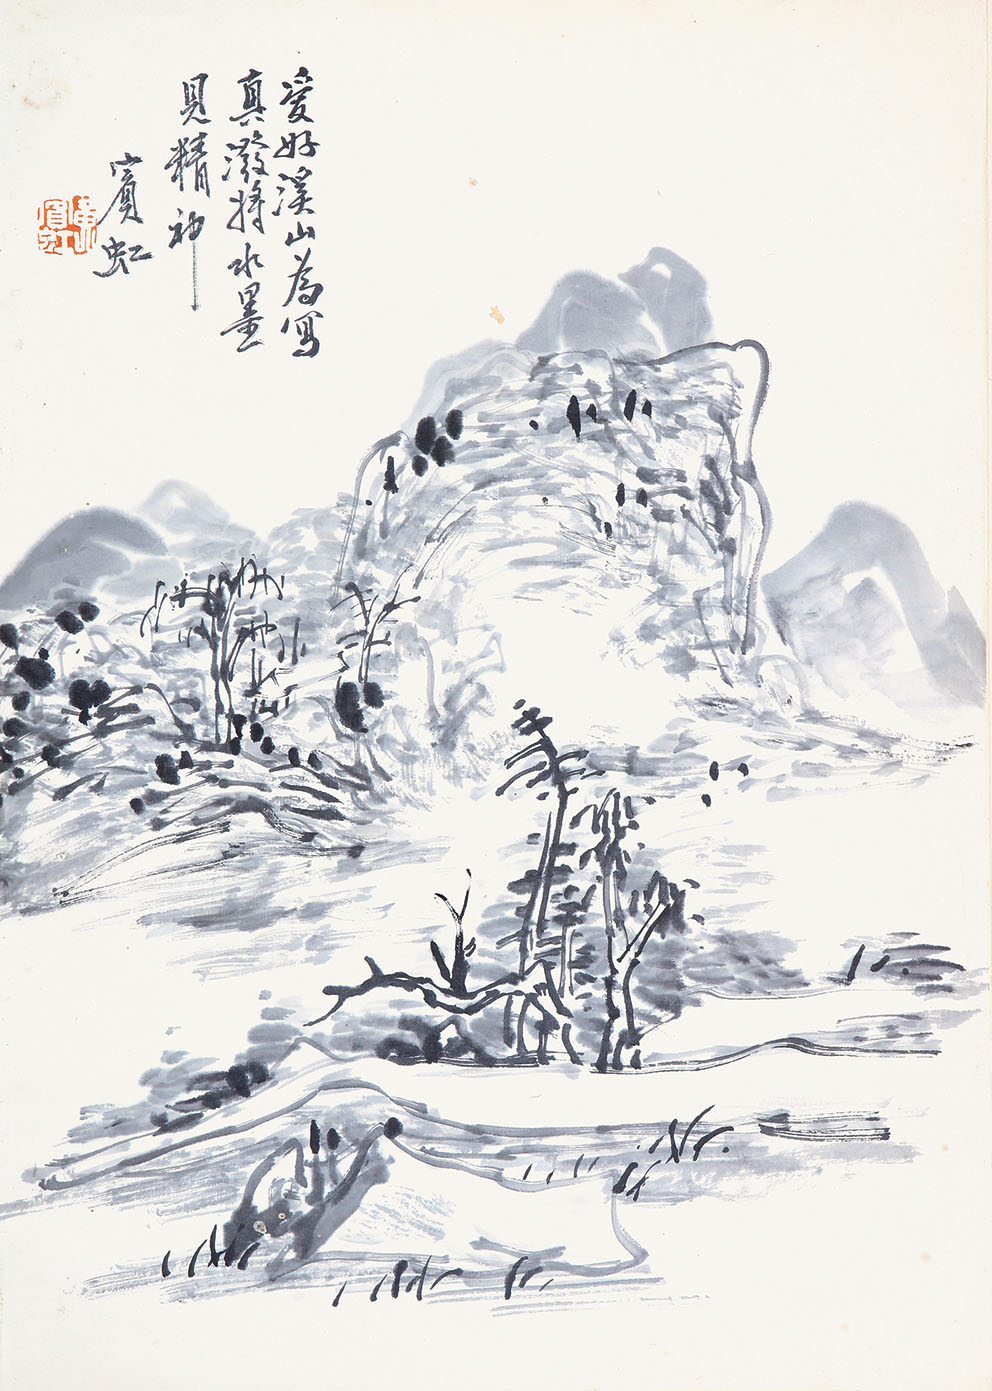 爱好溪山為寫
真潑將水墨
見精神
賓虹
黃賓虹